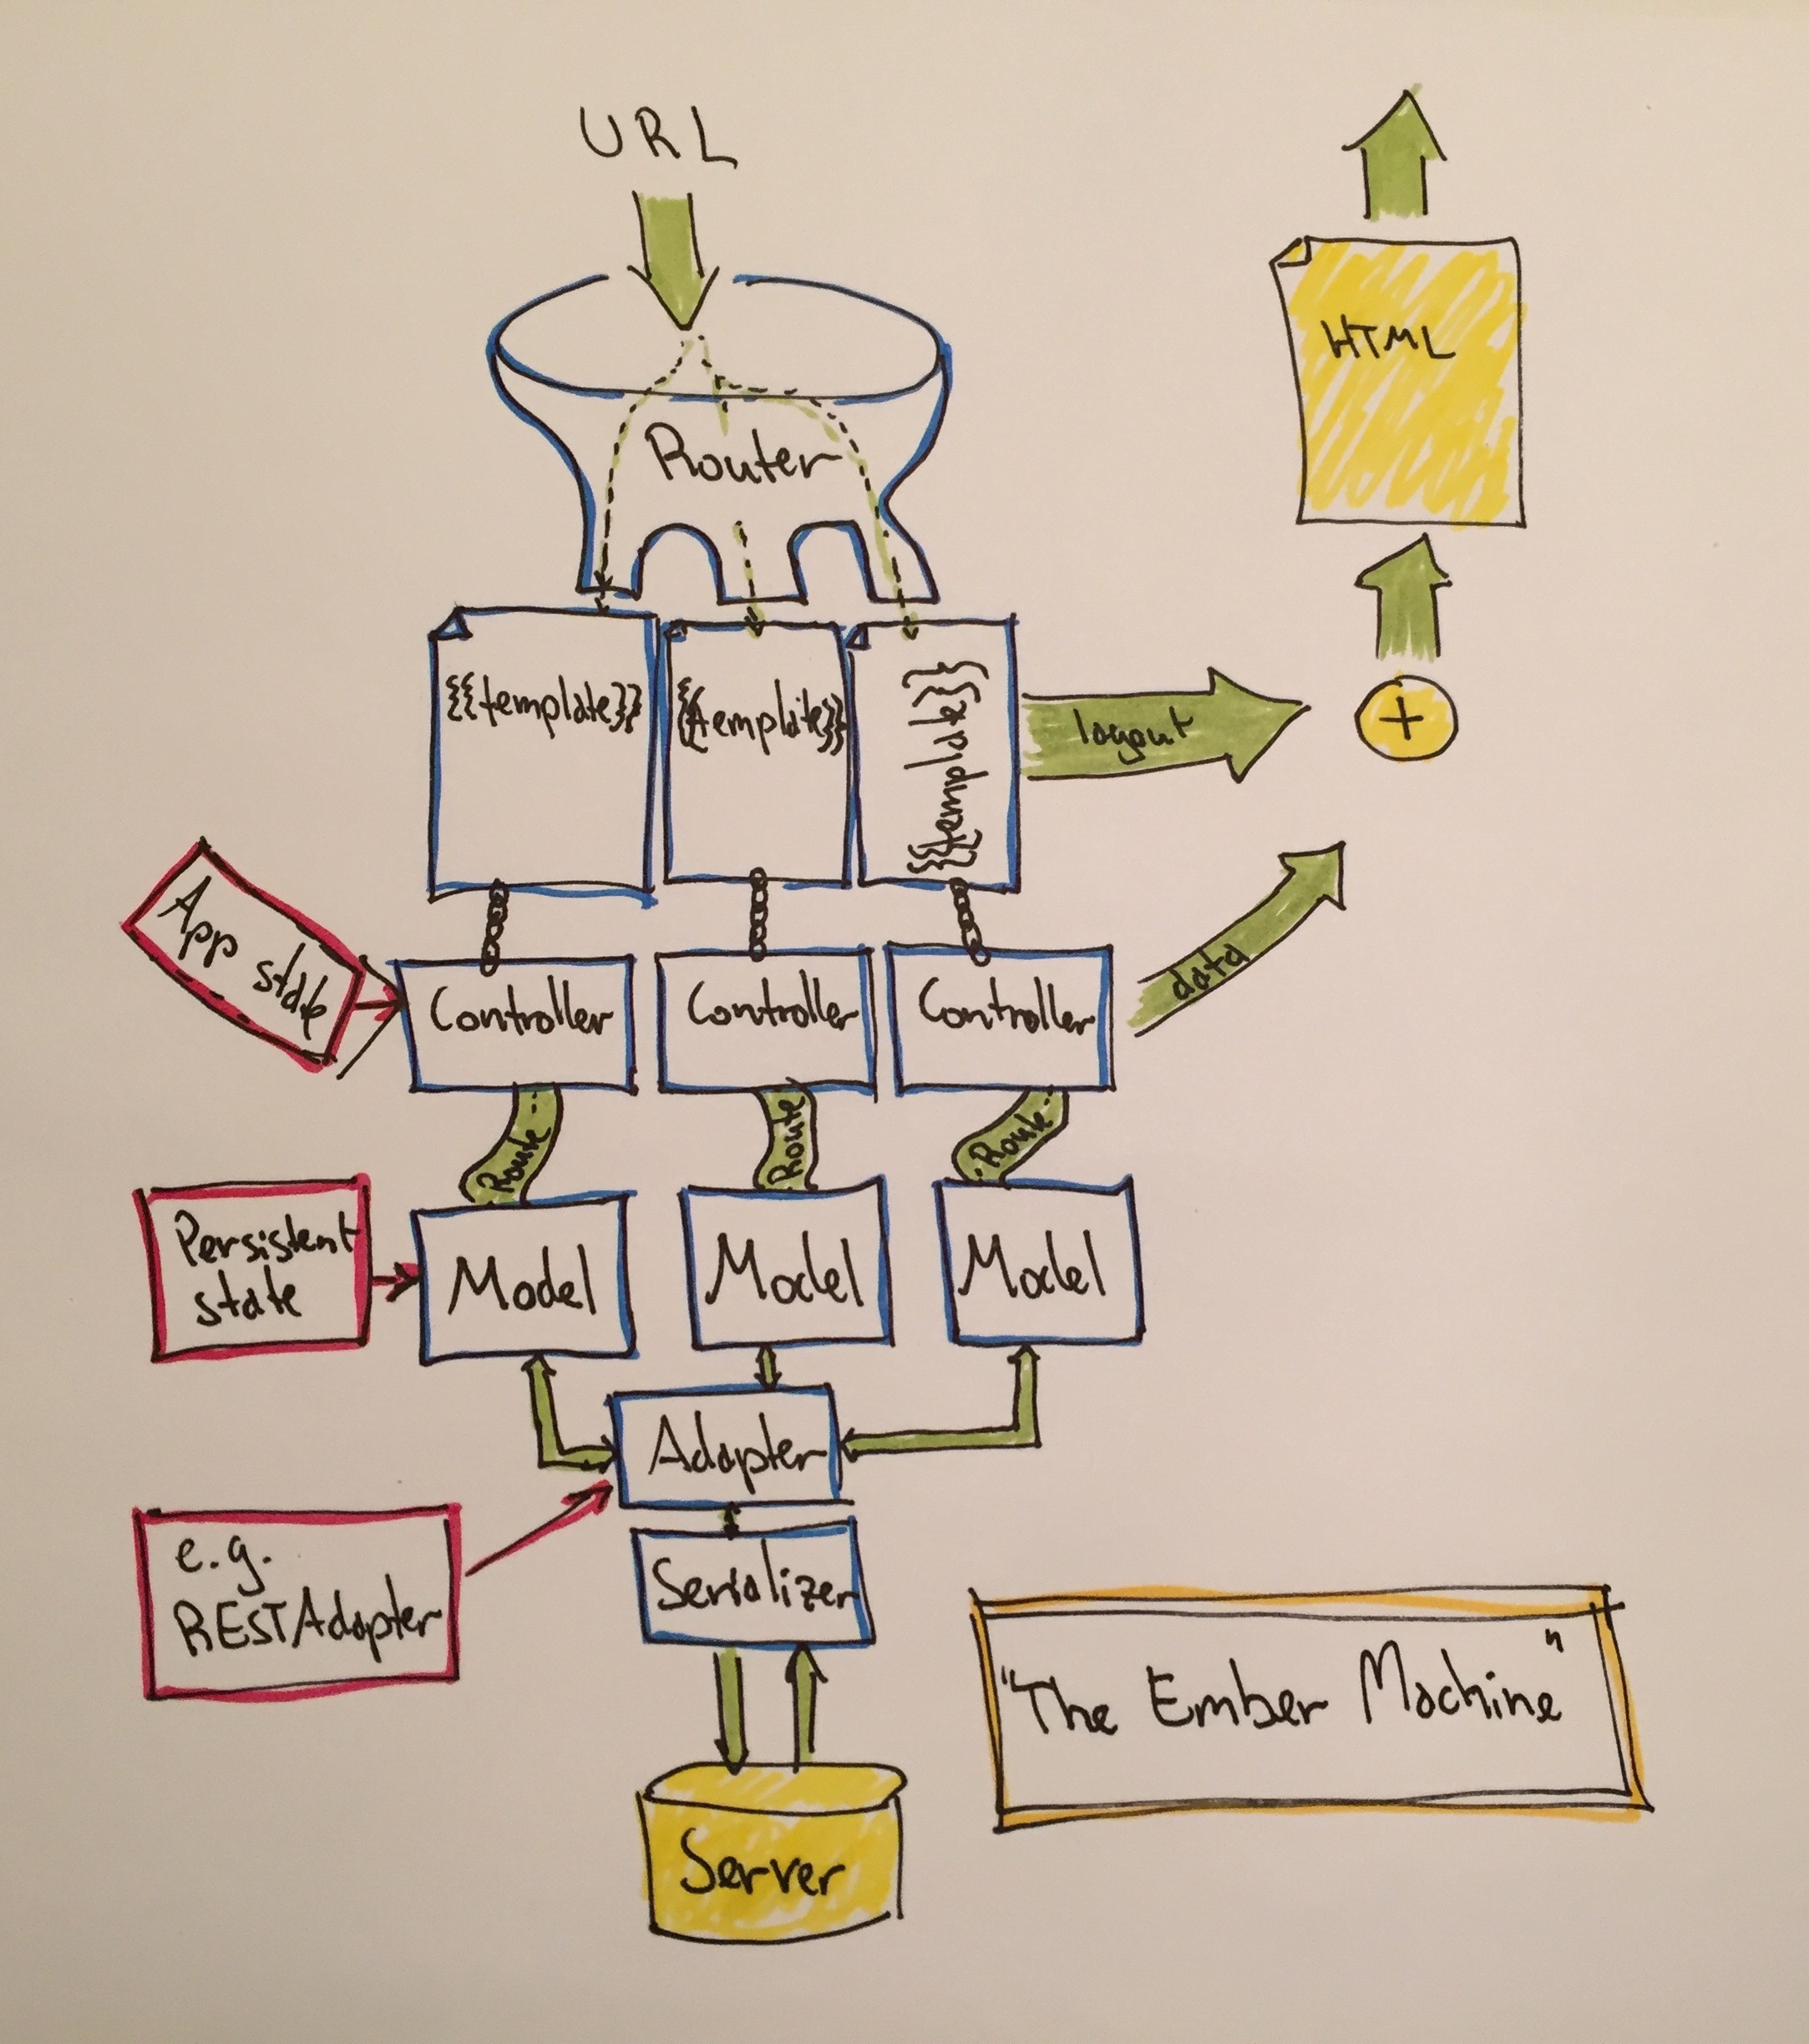 URL
HTML
Router
{{template}}
{{template}}
{{template}}
layout
+
App state
data
Controller
Controller
Controller
Route
Route
Route
Persistent
state
Model
Model
Model
Adapter
e.g.
RESTAdapter
Serializer
"The Ember Machine"
Server